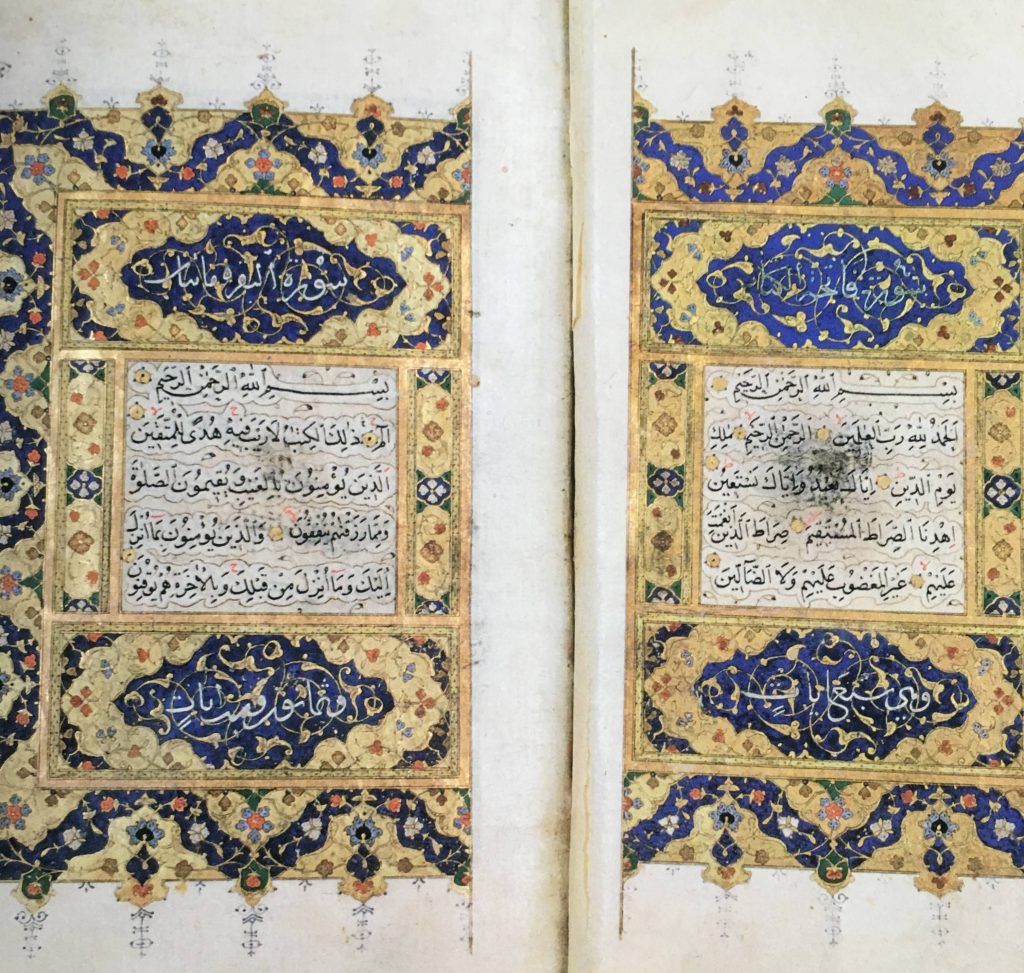 سُورَةُ فَاتِحَةِ الكِتَابِ
بِسْمِ اللهِ الرَّحْمٰنِ الرَّحِيْمِ
اَلْحَمْدُ لِلّٰهِ رَبِّ الْعٰلَمِيْنَ الرَّحْمٰنِ الرَّحِيْمِ مٰلِكِ
يَوْمِ الدِّيْنِ اِيَّاكَ نَعْبُدُ وَاِيَّاكَ نَسْتَعِيْنُ
اِهْدِنَا الصِّرَاطَ الْمُسْتَقِيْمَ صِرَاطَ الَّذِيْنَ اَنْعَمْتَ
عَلَيْهِمْ غَيْرِ الْمَغْضُوْبِ عَلَيْهِمْ وَلَا الضَّآلِّيْنَ
وَهِيَ سَبْعُ اٰيَاتٍ
سُوْرَةُ الْبَقَرَةِ مِائَتَانِ
بِسْمِ اللهِ الرَّحْمٰنِ الرَّحِيْمِ
الٓمٓ ذٰلِكَ الْكِتٰبُ لَا رَيْبَ فِيْهِ هُدًى لِلْمُتَّقِيْنَ
الَّذِيْنَ يُؤْمِنُوْنَ بِالْغَيْبِ وَيُقِيْمُوْنَ الصَّلٰوةَ
وَمِمَّا رَزَقْنٰهُمْ يُنْفِقُوْنَ وَالَّذِيْنَ يُؤْمِنُوْنَ بِمَآ اُنْزِلَ
اِلَيْكَ وَمَآ اُنْزِلَ مِنْ قَبْلِكَ وَبِالْاٰخِرَةِ هُمْ يُوْقِنُوْنَ
وَثَمَانُوْنَ اٰيَاتٍ